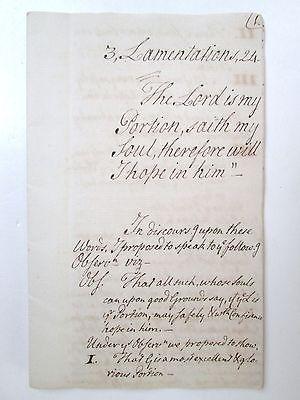 (1.
3, Lamentations, 24.
The Lord is my
Portion, saith my
Soul, therefore will
I hope in him" —
In discoursg upon these
Words. I proposed to speak to yᵉ followg
Observⁿ. viz —
Obs. That all such, whose souls
can upon good Grounds say, yᵗ yᵉ Ld is
yʳ Portion, may safely & wᵗʰ Confidence
hope in him. —
Under yᵉ Observⁿ we proposed to show.
I. That G is a most excellent & glo
rious Portion —